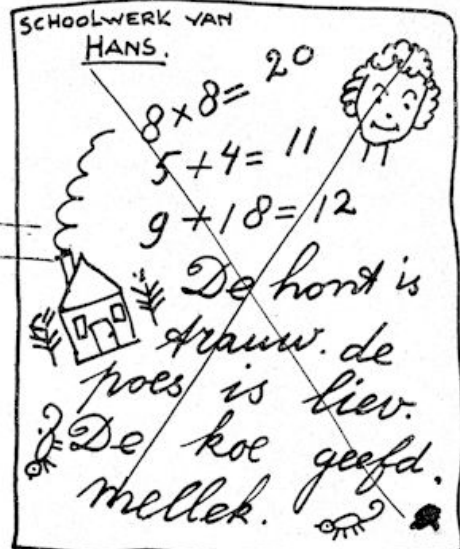 SCHOOLWERK VAN
HANS.
8×8= 20
5+4= 11
9+18= 12
De hont is
trauw. de
poes is liev.
De koe geefd.
mellek.